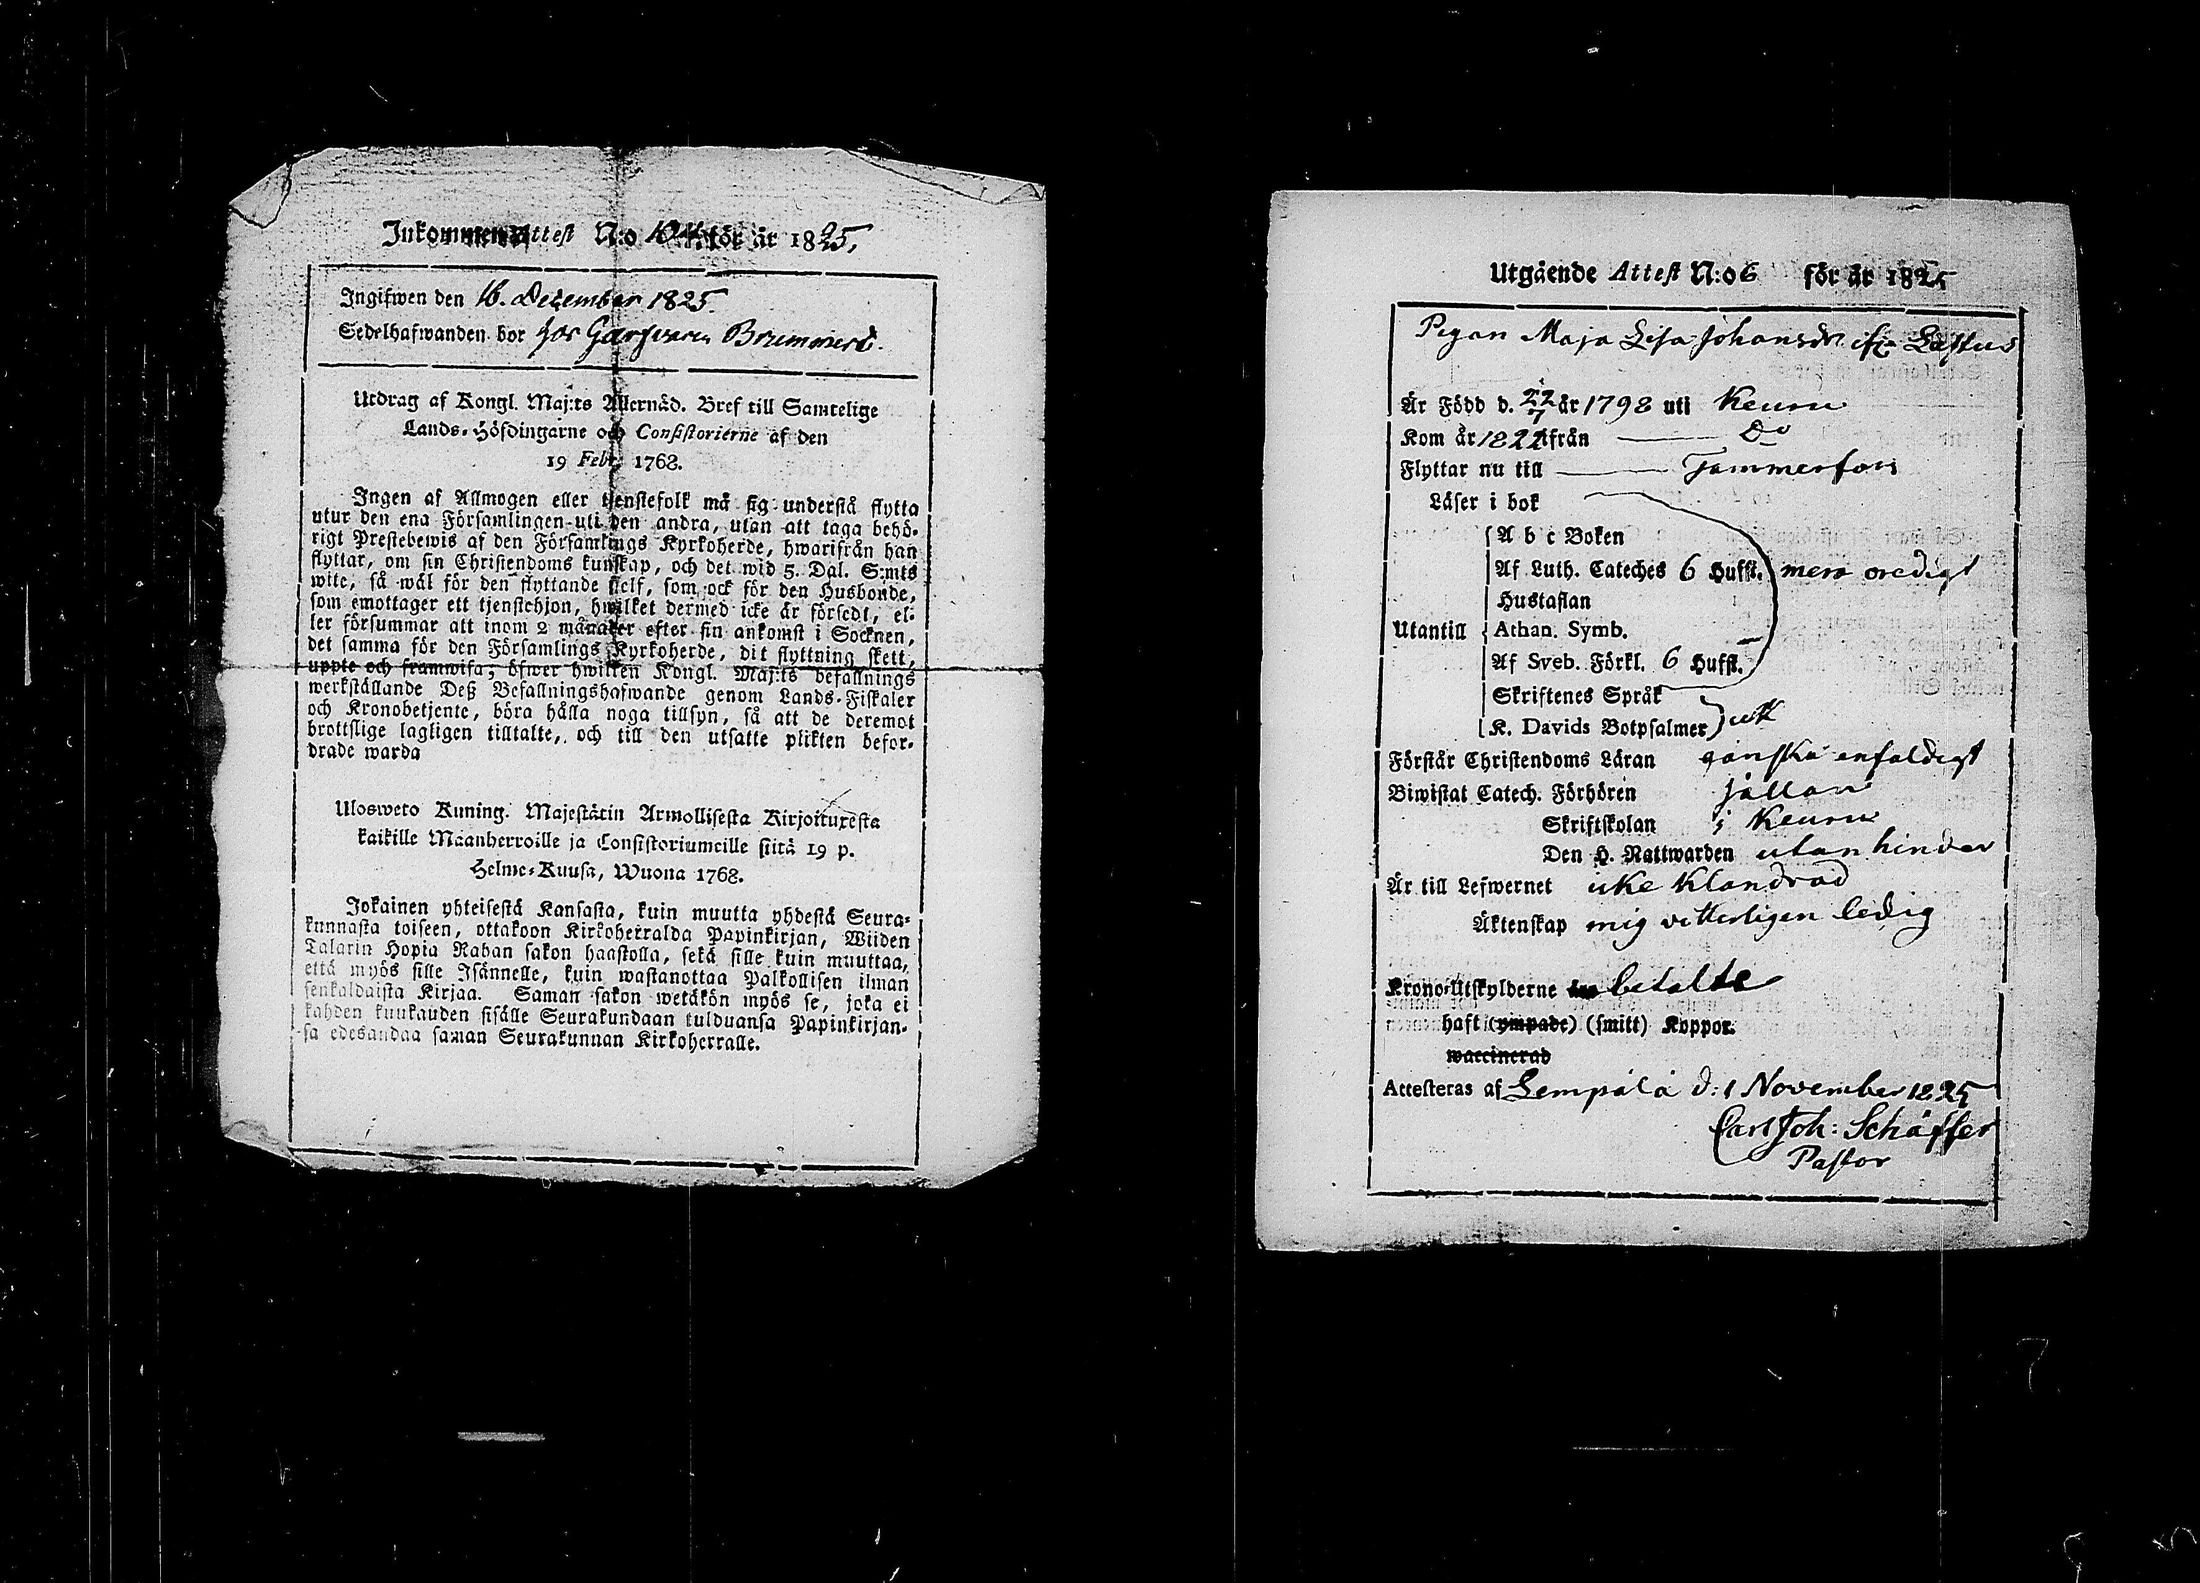 Inkommen Attest N:o 104 för år 1825.
Ingifwen den 16. December 1825.
Sedelhafwanden bor hos Garfvaren Brummerd.
Utdrag af Kongl. Maj:ts Allernåd. Bref till Samtelige
Lands-Höfdingarne och Consistorierne af den
19 Febr. 1768.
Ingen af Allmogen eller tjenstefolk må sig understå flytta
utur den ena Församlingen uti den andra, utan att taga behö-
rigt Prestebewis af den Församlings Kyrkoherde, hwarifrån han
flyttar, om sin Christendoms kunskap, och det wid 5. Dal. S:mts
wite, så wäl för den flyttande sjelf, som ock för den Husbonde,
som emottager ett tjenstehjon, hwilket dermed icke är försedt, el-
ler försummar att inom 2 månader efter sin ankomst i Socknen,
det samma för den Församlings Kyrkoherde, dit flyttning skett,
uppte och framwisa; öfwer hwilken Kongl. Maj:ts befallnings
werkställande Deß Befallningshafwande genom Lands-Fiskaler
och Kronobetjente, böra hålla noga tillsyn, så att de deremot
brottslige lagligen tilltalte, och till den utsatte plikten befor-
drade warda
Ulosweto Kuning. Majestätin Armollisesta Kirjoituxesta
kaikille Maanherroille ja Consistoriumeille siitä 19 p.
Helme-Kuusa, Wuona 1768.
Jokainen yhteisestä Kansasta, kuin muutta yhdestä Seura-
kunnasta toiseen, ottakoon Kirkoherralda Papinkirjan, Wiiden
Talarin Hopia Rahan sakon haastolla, sekä sille kuin muuttaa,
että myös sille Isännelle, kuin wastanottaa Palkollisen ilman
senkaldaista Kirjaa. Saman sakon wetäkön myös se, joka ei
kahden kuukauden sisälle Seurakundaan tulduansa Papinkirjan-
sa edesandaa saman Seurakunnan Kirkoherralle.
Utgående Attest N:o 6 för år 1825
Pigan Maja Lisa Johansdr ifr Lastus
Är Född d. 22/7 år 1798 uti Keuru
Kom år 1822 ifrån Do
Flyttar nu till Tammerfors
Läser i bok
A b c Boken
Af Luth. Cateches 6 Hufst. mera oredigt
Hustaflan
Utantill Athan. Symb.
Af Sveb. Förkl. 6 Hufst.
Skriftenes Språk
K. Davids Botpsalmer
Förstår Christendoms Läran ganska enfaldigt
Biwistat Catech. Förhören sällan
Skriftskolan i Keuru
Den H. Nattwarden utan hinder
Är till Lefwernet icke klandrad
Äktenskap mig vetterligen ledig
Krono-Utskylderne betalte
haft (ympade) (smitt) Koppor.
waccinerad
Attesteras af Lempälä d: 1 November 1825
Carl Joh: Schäffer
Pastor